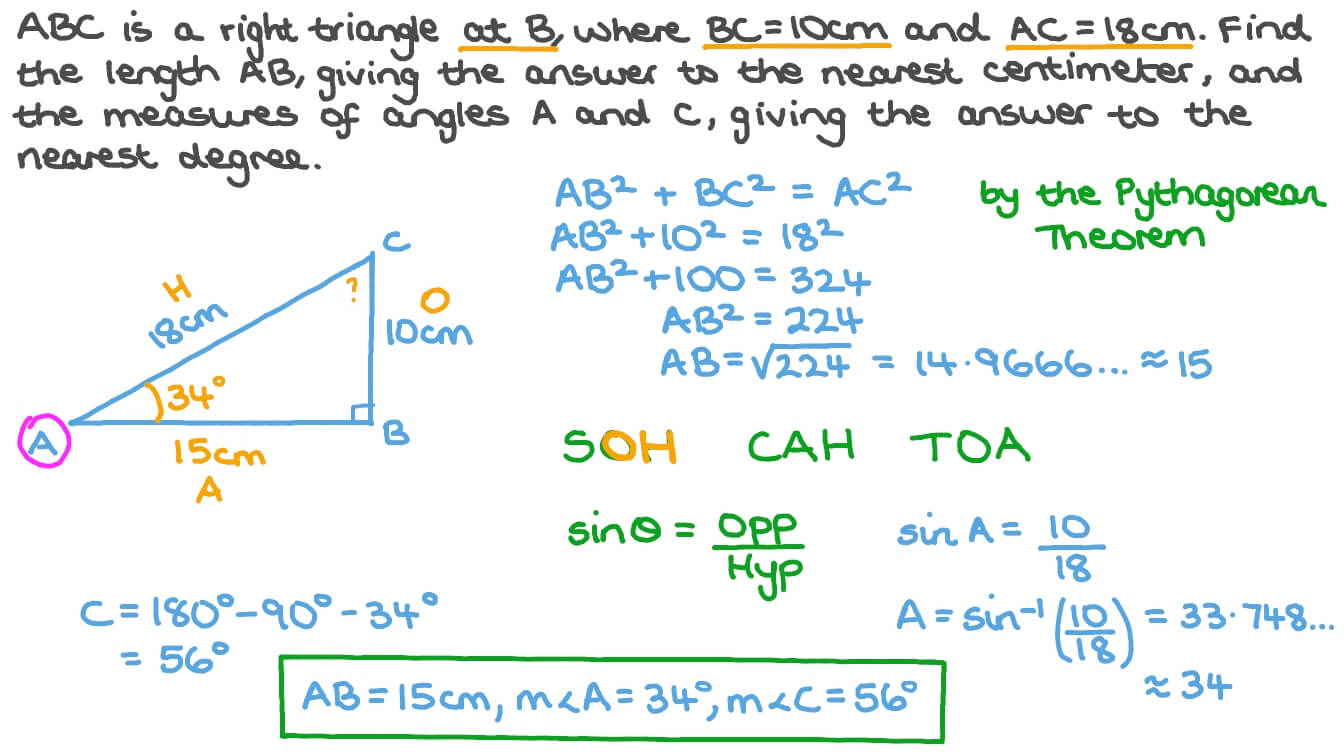 ABC is a right triangle at B, where BC=10cm and AC=18cm. Find
the length AB, giving the answer to the nearest centimeter, and
the measures of angles A and C, giving the answer to the
nearest degree.
AB² + BC² = AC²
by the Pythagorean
Theorem
AB² + 10² = 18²
AB² + 100 = 324
AB² = 224
AB = √224 = 14.9666... ≈ 15
C
H
18cm
?
O
10cm
34°
A
B
15cm
A
SOH CAH TOA
sinθ = Opp/Hyp
sin A = 10/18
A = sin⁻¹(10/18) = 33.748...
≈ 34
C = 180° - 90° - 34°
= 56°
AB = 15cm, m∠A = 34°, m∠C = 56°